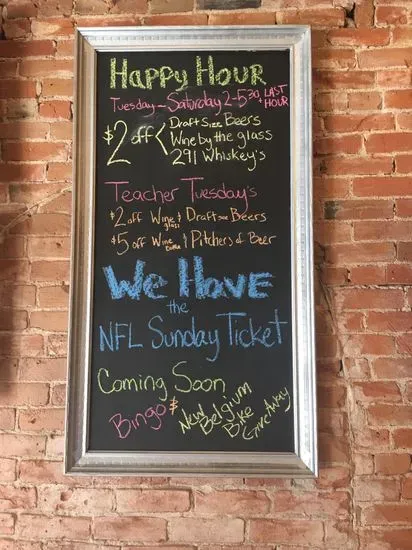 Happy Hour
Tuesday - Saturday 2-5:30 & LAST HOUR
$2 off < Draft Size Beers
Wine by the glass
291 Whiskey's
Teacher Tuesday's
$2 off Wine glass & Draft size Beers
$5 off Wine Bottle & Pitchers of Beer
We Have
the
NFL Sunday Ticket
Coming Soon
Bingo &
New Belgium Bike GiveAway